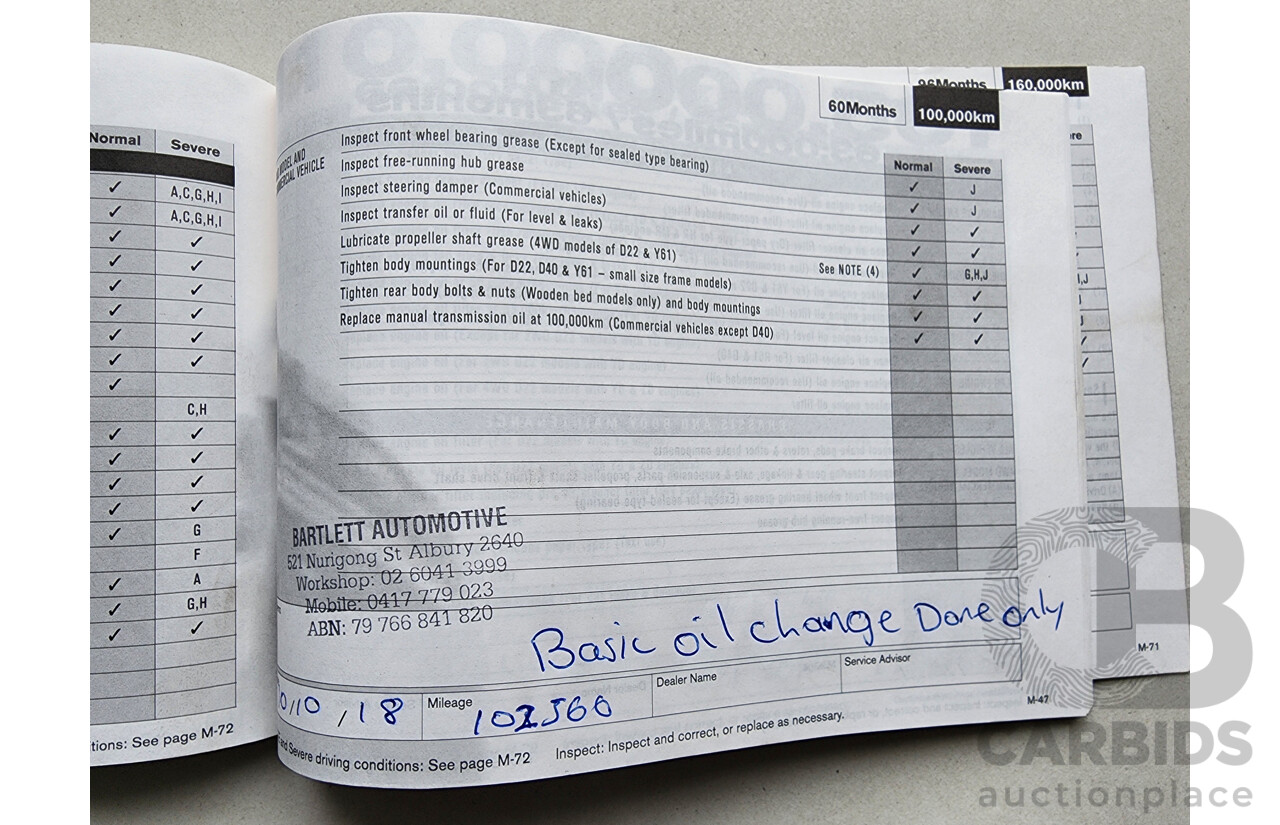 Normal Severe
✓ A,C,G,H,I
✓ A,C,G,H,I
✓ ✓
✓ ✓
✓ ✓
✓ ✓
✓ ✓
✓ ✓
✓
C,H
✓ ✓
✓ ✓
✓ ✓
✓ ✓
✓ G
F
✓ A
✓ G,H
✓ ✓
tions: See page M-72
60Months 100,000km
MODEL AND
VEHICLE
Normal Severe
Inspect front wheel bearing grease (Except for sealed type bearing) ✓ J
Inspect free-running hub grease ✓ J
Inspect steering damper (Commercial vehicles) ✓ ✓
Inspect transfer oil or fluid (For level & leaks) ✓ ✓
Lubricate propeller shaft grease (4WD models of D22 & Y61) See NOTE (4) ✓ G,H,J
Tighten body mountings (For D22, D40 & Y61 – small size frame models) ✓ ✓
Tighten rear body bolts & nuts (Wooden bed models only) and body mountings ✓ ✓
Replace manual transmission oil at 100,000km (Commercial vehicles except D40) ✓ ✓
BARTLETT AUTOMOTIVE
521 Nurigong St Albury 2640
Workshop: 02 6041 3999
Mobile: 0417 779 023
ABN: 79 766 841 820
Basic oil change Done only
0/10/18 Mileage 102566 Dealer Name Service Advisor
M-47
and Severe driving conditions: See page M-72 Inspect: Inspect and correct, or replace as necessary.
96Months 160,000km
M-71
CARBIDS
auctionplace